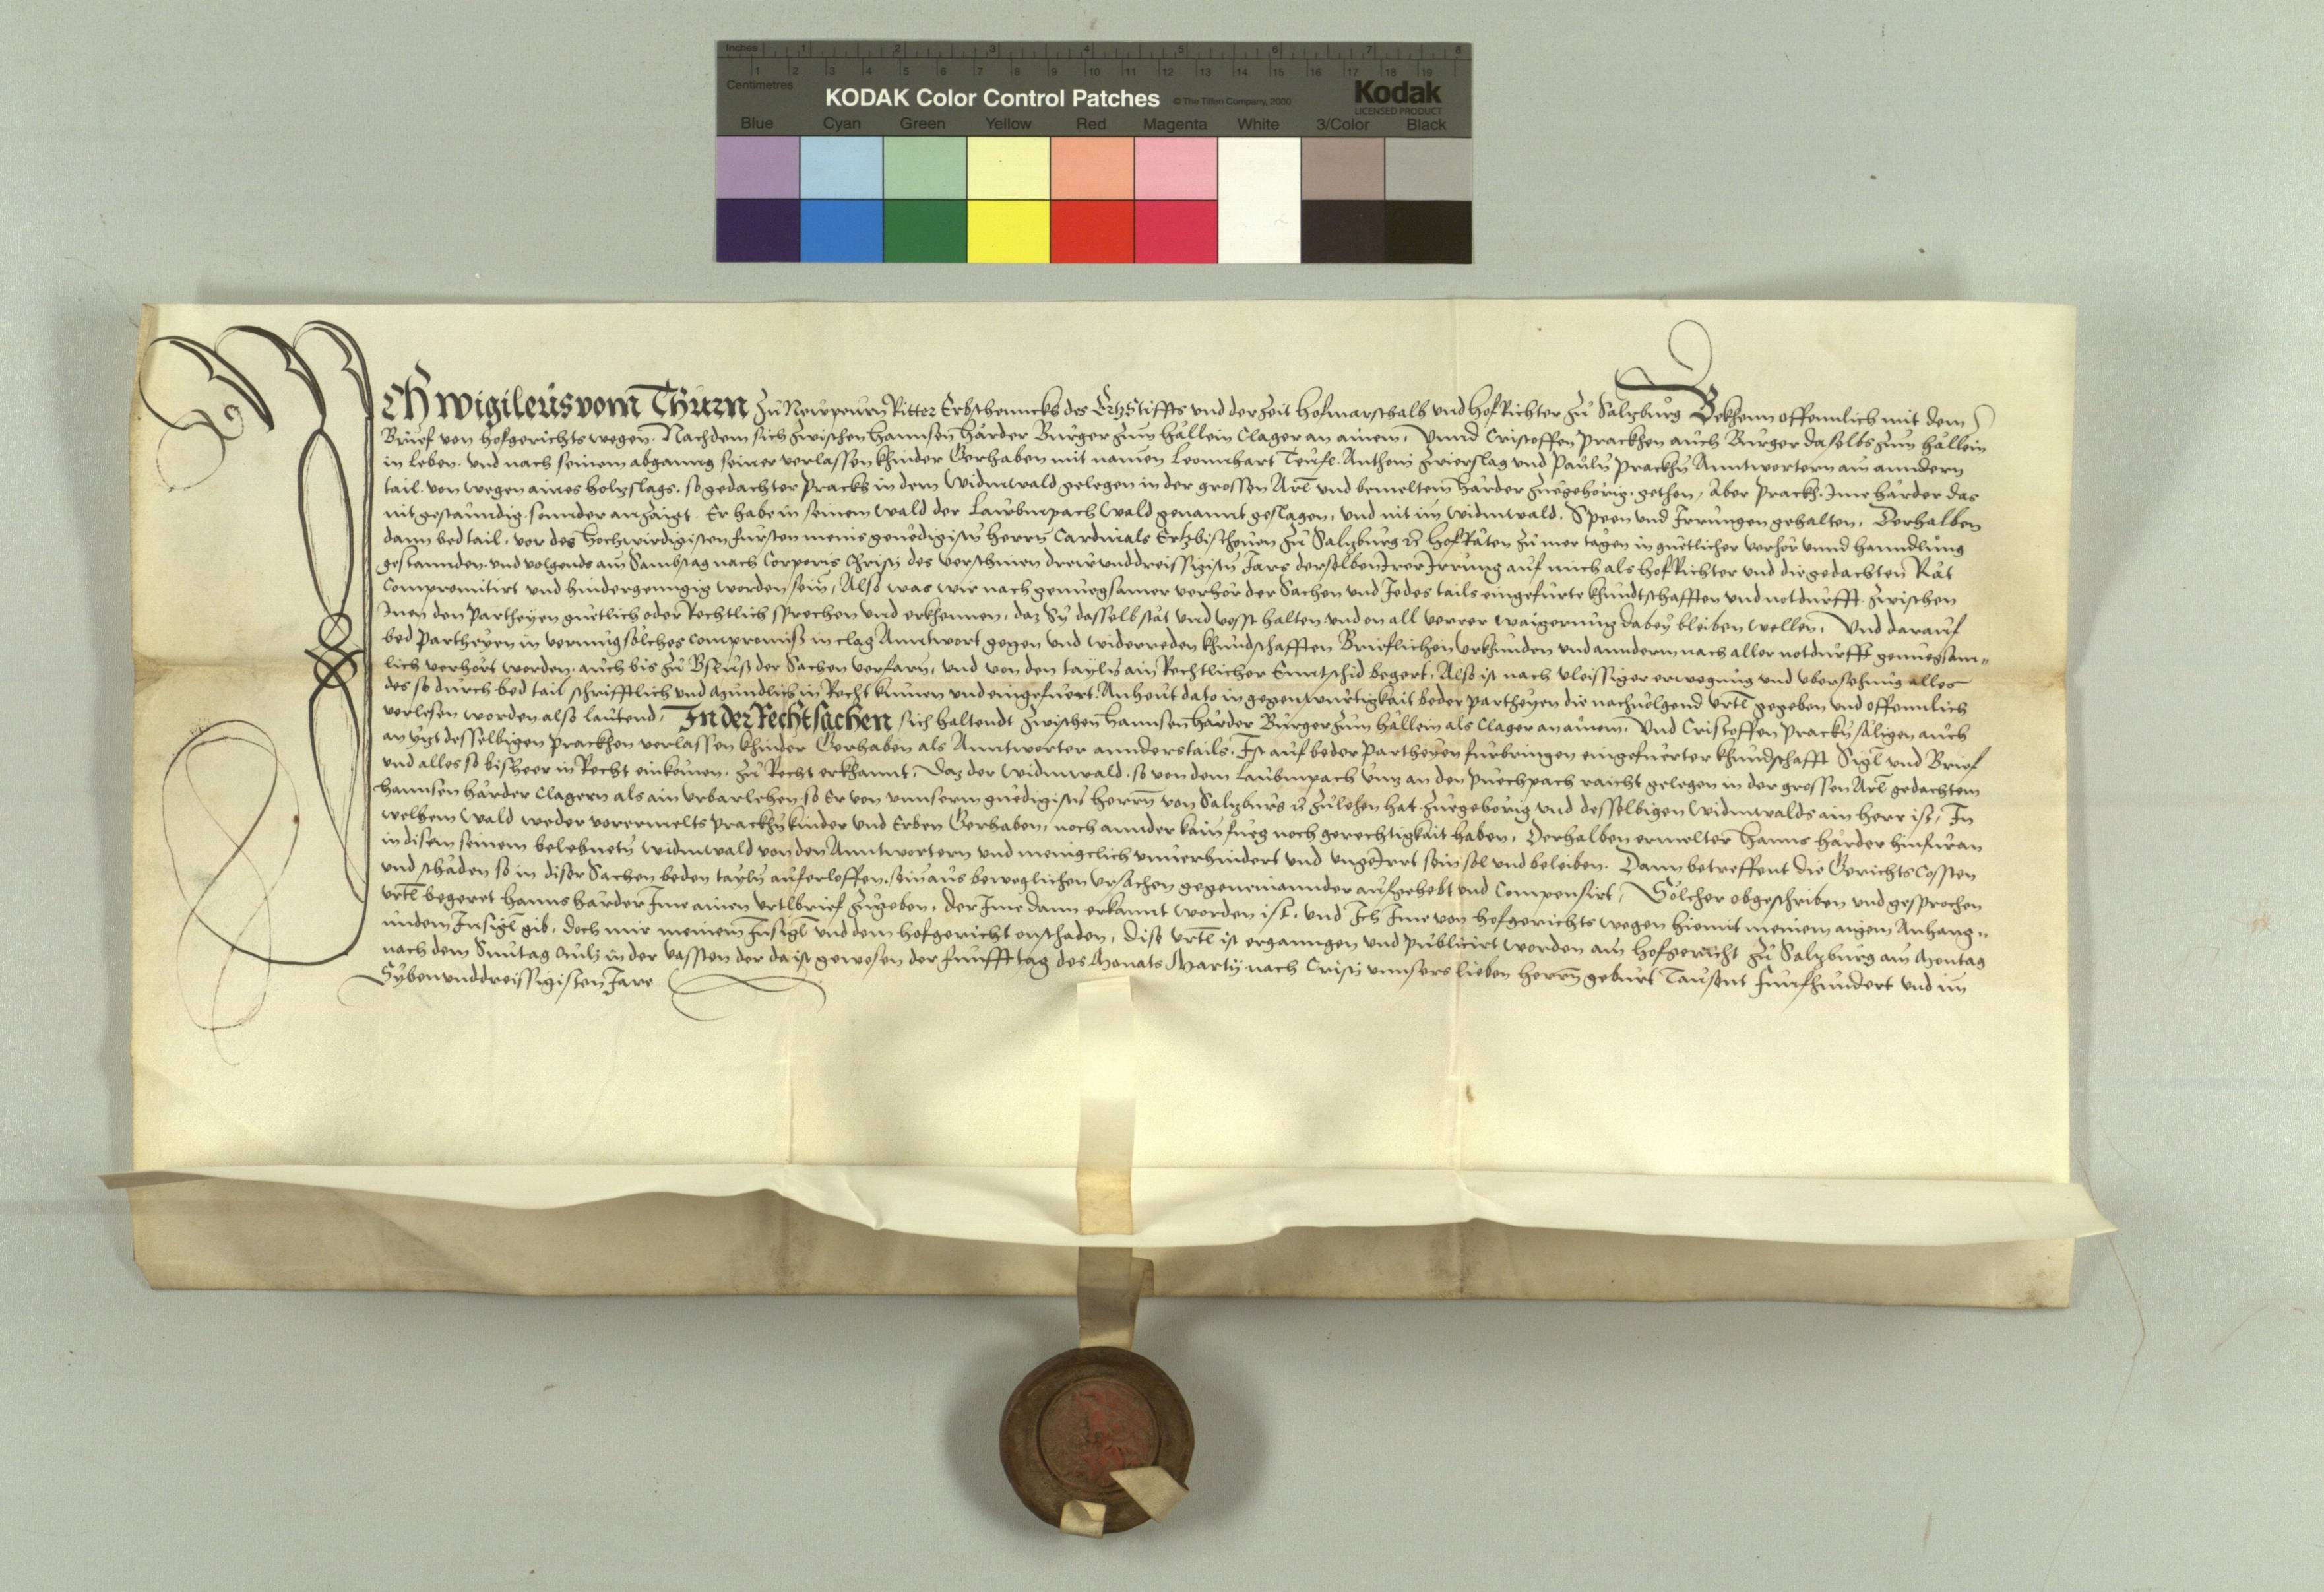 Inches 1 2 3 4 5 6 7 8
Centimetres 1 2 3 4 5 6 7 8 9 10 11 12 13 14 15 16 17 18 19
KODAK Color Control Patches © The Tiffen Company, 2000 Kodak
LICENSED PRODUCT
Blue Cyan Green Yellow Red Magenta White 3/Color Black
Ich Wigileus vom Thurn zu Newpeurn Ritter Erbschennckh des Ertzstiffts und der zeit Hofmarschalh und HofRichter zu Salzburg Bekhenn offennlich mit dem
Brief von hofgerichts wegen. Nachdem sich zwischen Hannsen Härder Burger zum Hällein Clager an ainem, Unnd Cristoffen Prackhen auch Burger daselbs zum Hällein
in leben. und nach seinem abganng seiner verlassen khinder Gerhaben mit namen Leonnhart Teufl. Anthoni Zwierslag und Pauln Prackhn Anntwortern am anndern
tail. von wegen aines holzslags. so gedachter Prackh in dem Widmwald gelegen in der grossen Arl und bemeltem Härder zuegehörig. gethon, Aber Prackh. Ime Härder das
nit gestanndig. sonnder anzaigt. Er habe in seinem wald der Laubmpach Wald genannt geslagen, und nit im widmwald. Speen und Irrungen gehalten, Derhalben
dann bed tail, vor des Hochwirdigisten fursten meins genedigisten herrn Cardinals Ertzbischouen zu Salzburg etc HofRäten zu mer tagen in guetlicher verhör unnd hanndlung
gestannden. und volgends am Sambstag nach Corporis Christi des verschinen dreiunddreissigisten Jars derselben Irer Irrung auf mich als HofRichter und die gedachten Rät
Compromitirt und hindergenngig worden sein, Also was wir nach genuegsamer verhör der Sachen und Jedes tails eingefürte khundtschafften und notdurfft. zwischen
Inen den Partheyen guetlich oder Rechtlich sprechen und erkhennen, daz Sy dasselb stät und vesst halten und on all verrer waigerung dabey bleiben wellen, Und darauf
bed Partheyen in vermug solches compromiß in clag Anntwort gegen und widerreden khundschafften Brieflichen urkhunden und annderm nach aller notdurfft genuegsam=
lich verhört worden. auch bis zu Bsluß der Sachen verfarn, und von den tayln ain Rechtlicher Enntschid begert, Also ist nach vleissiger erwegung und ubersehung alles
des so durch bed tail schrifftlich und mundlich in Recht kumen und eingefuert. Anheut dato in gegenwurtigkait beder partheyen die nachuolgend urtl gegeben und offennlich
verlesen worden also lautend, In der Rechtsachen sich haltendt zwischen Hannsen Härder Burger zum Hällein als Clager an ainem, Und Cristoffen Prackhn säligen auch
an yzt desselbigen Prackhen verlassen khinder Gerhaben als Anntworter annderstails. Ist auf beder Partheyen furbringen eingefuerter khundschafft Sigl und Brief
und alles so bisheer in Recht einkomen. zu Recht erkhannt, Daz der Widmwald. so von dem Laubmpach unz an den Puechpach raicht gelegen in der grossen Arl gedachtem
Hannsen Härder Clagern als ain urbarlehen so Er von unnserm gnedigisten herrn von Salzburg etc zulehen hat. zuegehörig und desselbigen Widmwalds ain herr ist, In
welhem Wald weder vorermelts Prackhn kinder und Erben Gerhaben, noch annder kain fueg noch gerechtigkait haben, Derhalben ermelter Hanns Härder hinfuran
in disem seinem belehneten Widmwald von den Anntwortern und menigclich unuerhindert und ungeirrt sein sol und beleiben. Dann betreffent die Gerichts Cossten
und schaden so in diser Sachen beden tayln auferloffen, sein aus beweglichen ursachen gegeneinannder aufgehebt und Compensirt, Solcher obgeschriben und gesprochen
urtl begeret Hanns Härder Ime ainen urtlbrief zugeben. der Ime dann erkannt worden ist. und Ich Ime von hofgerichts wegen hiemit meinem aigem Anhang=
undem Insigl gib. doch mir meinem Insigl und dem hofgericht onschaden, Dise urtl ist erganngen und publicirt worden am hofgericht zu Salzburg am Montag
nach dem Sunntag Oculi in der vassten der da ist gewesen der funfft tag des Monats Martii nach Cristi unnsers lieben herrn geburt Tausent Funfhundert und im
Sybenunddreissigisten Jare